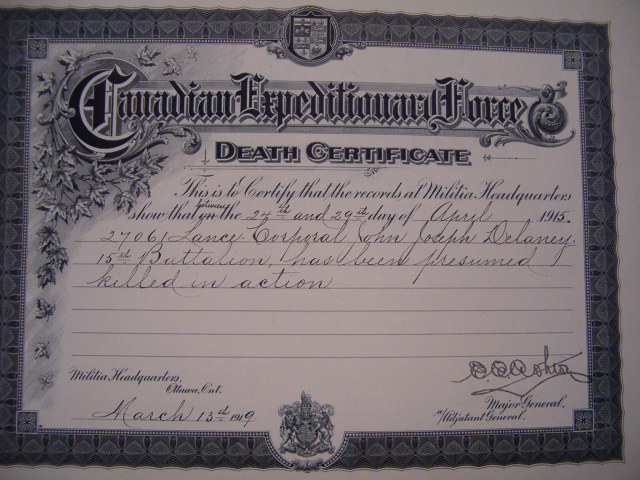 Canadian Expeditionary Force
DEATH CERTIFICATE
This is to Certify that the records at Militia Headquarters
between
show that on the 24th and 29th day of April 1915.
27061 Lance Corporal John Joseph Delaney.
15th Battalion, has been presumed
killed in action
Militia Headquarters,
Ottawa, Ont.
March 13th 1919
Major General.
Adjutant General.